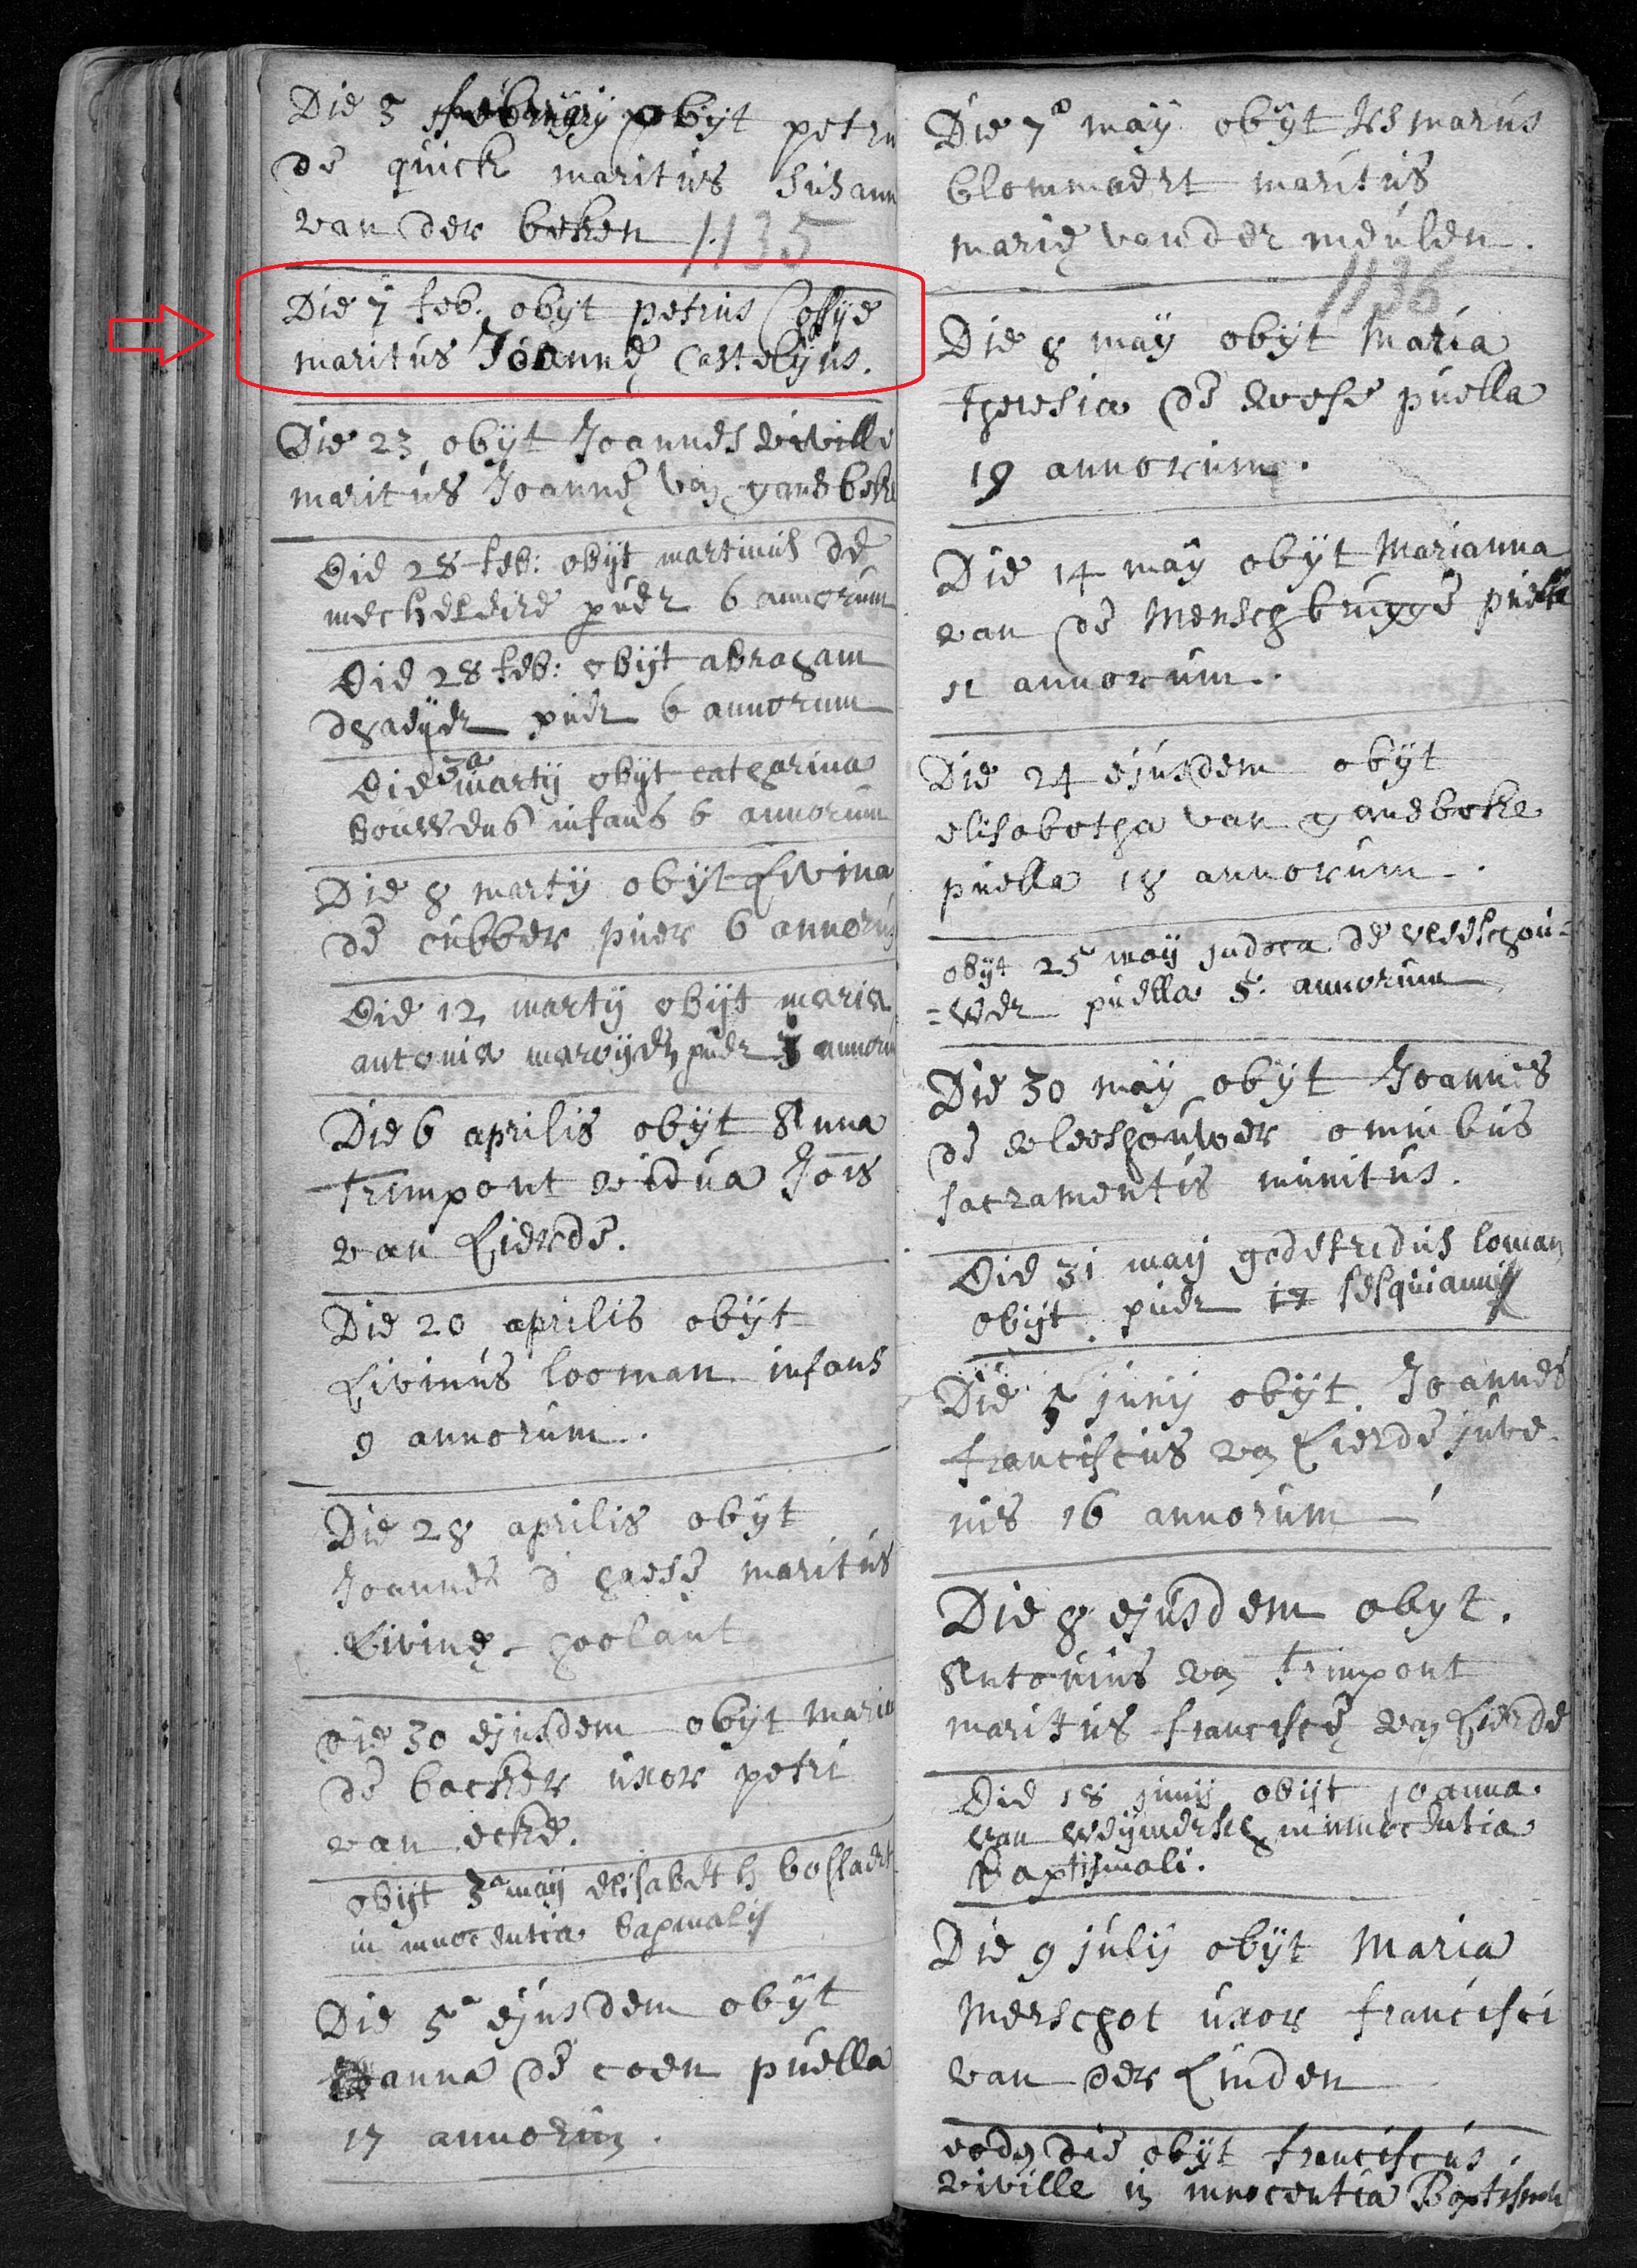 Die 3 februarij obijt petru
de quick maritus susann
van der beken
1135
Die 7 feb. obijt petrus
maritus Joannę Castelijns.
Die 23 obijt Joannes viville
maritus Joannę van gansbeke
Die 28 feb: obijt martinus de
mecheleire puer 6 annorum
Die 28 feb: obijt abraham
dhaeijer puer 6 annorum
Die 3a martij obijt catharina
infans 6 annorum
Die 8 martij obijt Livina
de cubber puer 6 annoru
Die 12 martij obijt maria
antonia puer annoru
Die 6 aprilis obijt Anna
trimpont vidua Jois
van Lierde.
Die 20 aprilis obijt
Livinus looman infans
9 annorum.
Die 28 aprilis obijt
Joannes d haese maritus
Livinę
Die 30 ejusdem obijt maria
de backer uxor petri
van ecke.
obijt 3a maij elisabeth bossaert
in innocentia bapmalis
Die 5a ejusdem obijt
anna de coen puella
17 annorum.
Die 7a maij obijt
blommaert maritus
marię vander meulen.
1136
Die 8 maij obijt Maria
theresia de puella
19 annorum.
Die 14 maij obijt Marianna
van de Menschbrugge puella
11 annorum.
Die 24 ejusdem obijt
elisabetha van gansbeke
puella 18 annorum.
obijt 25 maij judoca de vleeschou=
=wer puella 5: annorum
Die 30 maij obijt Joannes
de vleeshouwer omnibus
sacramentis munitus.
Die 31 maij godefridus loman
obijt puer sesquianni
Die 5 junij obijt Joannes
franciscus van Lierde juve-
nis 16 annorum
Die 8 ejusdem obijt.
Antonius van trimpont
maritus franciscę van Lierde
Die 18 junij obijt joanna
van weijmersch in innocentia
baptismali.
Die 9 julij obijt Maria
Merschot uxor francisci
van der Linden
eodem die obijt franciscus
viville in innocentia Baptismali